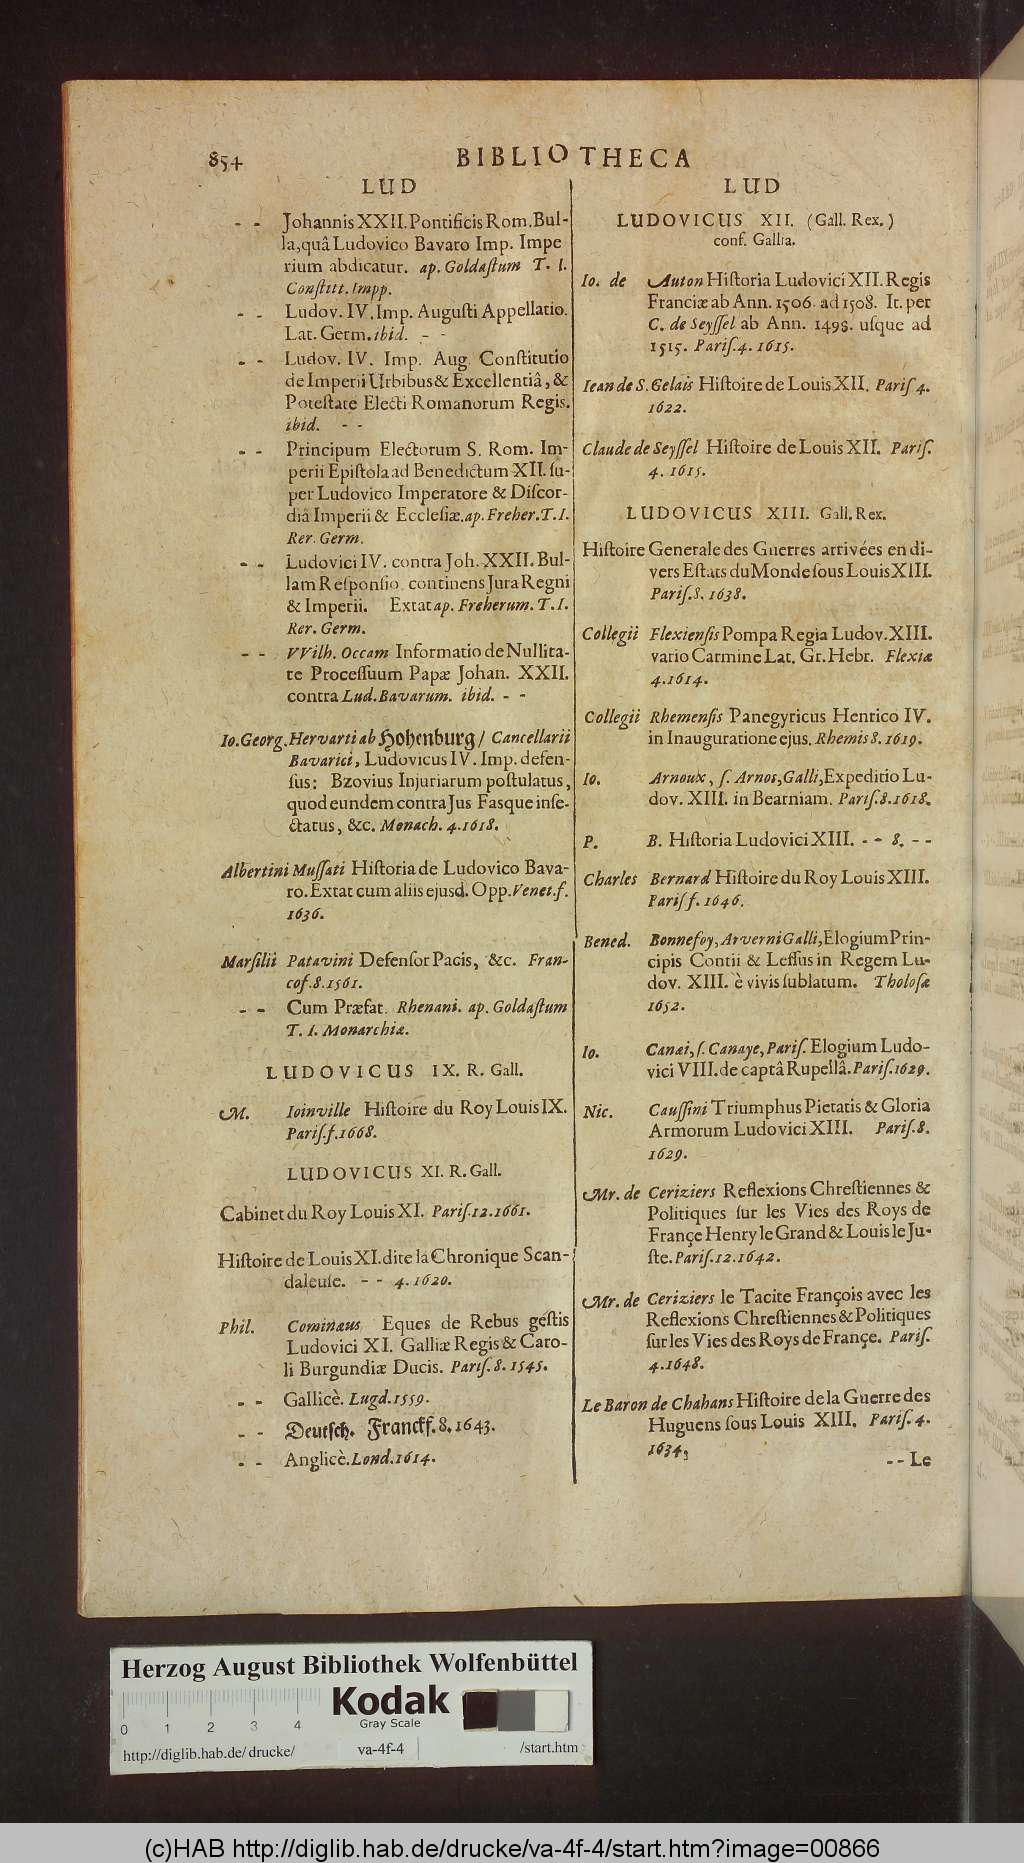 854
BIBLIOTHECA
LUD
- - Johannis XXII. Pontificis Rom. Bul-
la, quâ Ludovico Bavaro Imp. Impe
rium abdicatur. ap. Goldaſtum T. I.
Conſtit. Impp.
- - Ludov. IV. Imp. Auguſti Appellatio.
Lat. Germ. ibid. - -
- - Ludov. IV. Imp. Aug. Conſtitutio
de Imperii Urbibus & Excellentiâ, &
Poteſtate Electi Romanorum Regis.
ibid. - -
- - Principum Electorum S. Rom. Im-
perii Epiſtola ad Benedictum XII. ſu-
per Ludovico Imperatore & Diſcor-
diâ Imperii & Eccleſiæ. ap. Freher. T. I.
Rer. Germ.
- - Ludovici IV. contra Joh. XXII. Bul-
lam Reſponſio, continens Jura Regni
& Imperii. Extat ap. Freherum. T. I.
Rer. Germ.
- - VVilh. Occam Informatio de Nullita-
te Proceſſuum Papæ Johan. XXII.
contra Lud. Bavarum. ibid. - -
Io. Georg. Hervarti ab Hohenburg / Cancellarii
Bavarici, Ludovicus IV. Imp. defen-
ſus: Bzovius Injuriarum poſtulatus,
quod eundem contra Jus Fasque inſe-
ctatus, &c. Monach. 4. 1618.
Albertini Muſſati Hiſtoria de Ludovico Bava-
ro. Extat cum aliis ejusd. Opp. Venet. f.
1636.
Marſilii Patavini Defenſor Pacis, &c. Fran-
cof. 8. 1561.
- - Cum Præfat. Rhenani. ap. Goldaſtum
T. I. Monarchiæ.
LUDOVICUS IX. R. Gall.
M. Ioinville Hiſtoire du Roy Louis IX.
Pariſ. f. 1668.
LUDOVICUS XI. R. Gall.
Cabinet du Roy Louis XI. Pariſ. 12. 1661.
Hiſtoire de Louis XI. dite la Chronique Scan-
daleuſe. - - 4. 1620.
Phil. Cominæus Eques de Rebus geſtis
Ludovici XI. Galliæ Regis & Caro-
li Burgundiæ Ducis. Pariſ. 8. 1545.
- - Gallicè. Lugd. 1559.
- - Deutſch. Franckf. 8. 1643.
- - Anglicè. Lond. 1614.
LUD
LUDOVICUS XII. (Gall. Rex.)
conf. Gallia.
Io. de Auton Hiſtoria Ludovici XII. Regis
Franciæ ab Ann. 1506. ad 1508. It. per
C. de Seyſſel ab Ann. 1498. uſque ad
1515. Pariſ. 4. 1615.
Iean de S. Gelais Hiſtoire de Louis XII. Pariſ 4.
1622.
Claude de Seyſſel Hiſtoire de Louis XII. Pariſ.
4. 1615.
LUDOVICUS XIII. Gall. Rex.
Hiſtoire Generale des Guerres arrivées en di-
vers Eſtats du Monde ſous Louis XIII.
Pariſ. 8. 1638.
Collegii Flexienſis Pompa Regia Ludov. XIII.
vario Carmine Lat. Gr. Hebr. Flexiæ
4. 1614.
Collegii Rhemenſis Panegyricus Henrico IV.
in Inauguratione ejus. Rhemis 8. 1619.
Io. Arnoux, ſ. Arnos, Galli, Expeditio Lu-
dov. XIII. in Bearniam. Pariſ. 8. 1618.
P. B. Hiſtoria Ludovici XIII. - - 8. - -
Charles Bernard Hiſtoire du Roy Louis XIII.
Pariſ f. 1646.
Bened. Bonnefoy, Arverni Galli, Elogium Prin-
cipis Contii & Leſſus in Regem Lu-
dov. XIII. è vivis ſublatum. Tholoſæ
1652.
Io. Canai, ſ. Canaye, Pariſ. Elogium Ludo-
vici VIII. de captâ Rupellâ. Pariſ. 1629.
Nic. Cauſſini Triumphus Pietatis & Gloria
Armorum Ludovici XIII. Pariſ. 8.
1629.
Mr. de Ceriziers Reflexions Chreſtiennes &
Politiques ſur les Vies des Roys de
Françe Henry le Grand & Louis le Ju-
ſte. Pariſ. 12. 1642.
Mr. de Ceriziers le Tacite François avec les
Reflexions Chreſtiennes & Politiques
ſur les Vies des Roys de Françe. Pariſ.
4. 1648.
Le Baron de Chabans Hiſtoire de la Guerre des
Huguens ſous Louis XIII. Pariſ. 4.
1634.
- - Le
Herzog August Bibliothek Wolfenbüttel
Kodak
Gray Scale
0 1 2 3 4
http://diglib.hab.de/drucke/ va-4f-4 /start.htm
(c)HAB http://diglib.hab.de/drucke/va-4f-4/start.htm?image=00866